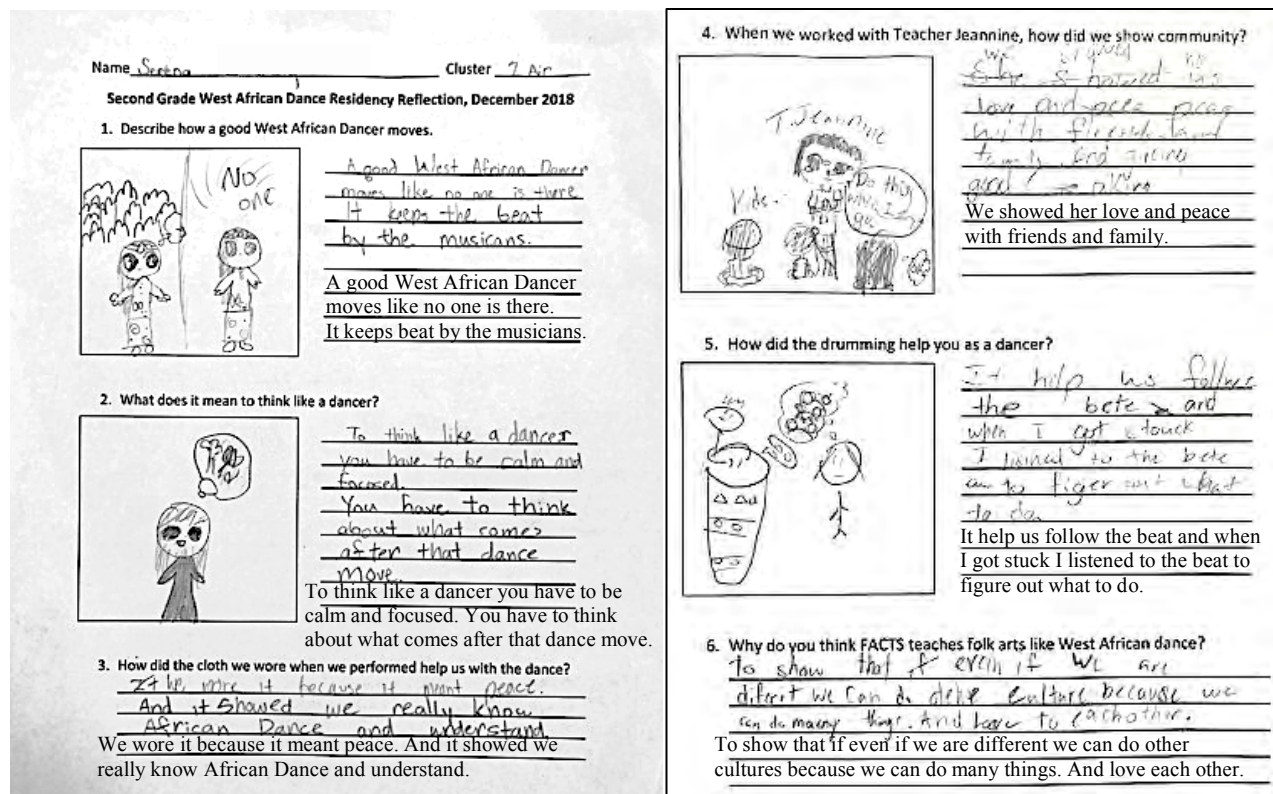 Name Serena Cluster 2 Air
Second Grade West African Dance Residency Reflection, December 2018
1. Describe how a good West African Dancer moves.
No
one
A good West African Dancer
moves like no one is there
It keeps the beat
by the musicans.
A good West African Dancer
moves like no one is there.
It keeps beat by the musicians.
2. What does it mean to think like a dancer?
To think like a dancer
you have to be calm and
focused.
You have to think
about what comes
after that dance
move.
To think like a dancer you have to be
calm and focused. You have to think
about what comes after that dance move.
3. How did the cloth we wore when we performed help us with the dance?
it because it meant peace.
And it showed we really know
African Dance and understand
We wore it because it meant peace. And it showed we
really know African Dance and understand.
4. When we worked with Teacher Jeannine, how did we show community?
T. Jeannine
Kids
Do this
We
showed
love and
with
family and
good
We showed her love and peace
with friends and family.
5. How did the drumming help you as a dancer?
It help us follow
the bete and
when I got stouck
I to the bete
to figer out what
to do
It help us follow the beat and when
I got stuck I listened to the beat to
figure out what to do.
6. Why do you think FACTS teaches folk arts like West African dance?
to show that if even if we are
we can do culture because we
can do many things. And love to eachother.
To show that if even if we are different we can do other
cultures because we can do many things. And love each other.